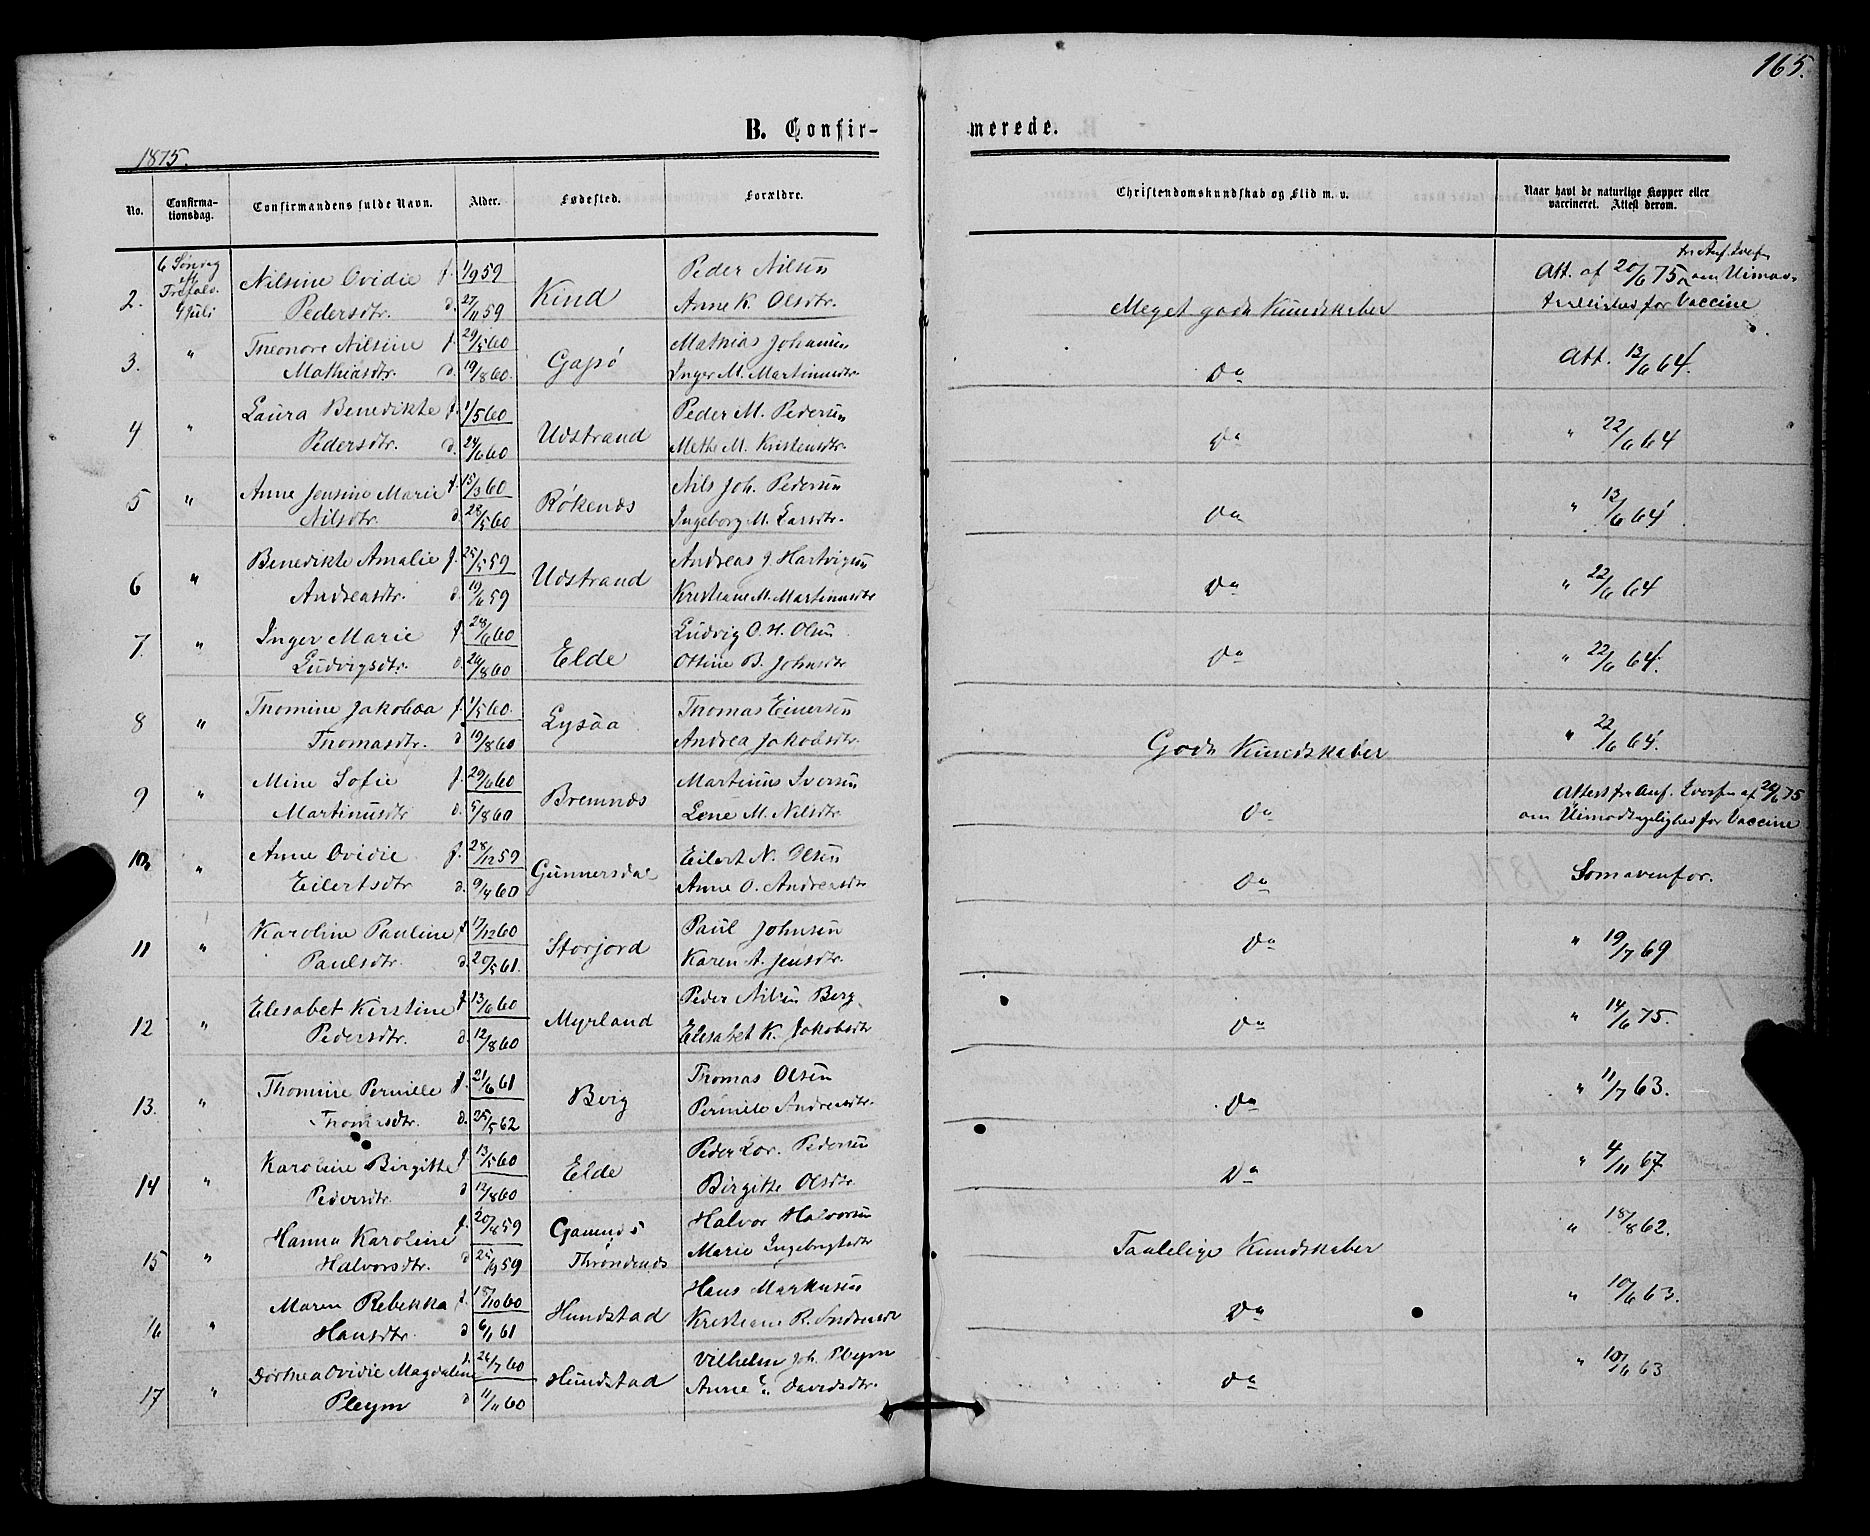 165.
B. Confir-
merede.
1875.
No.
Confirma-
tionsdag.
Confirmandens fulde Navn.
Alder.
Fødested.
Forældre.
Christendomskundskab og Flid m. v.
Naar havt de naturlige Kopper eller
vaccineret. Attest derom.
2. 6 Søndag Nilsine Ovidie f. 1/9 59 Kind Peder Nilsen
4 Juli Pedersdtr. d. 27/11 59 Anne K. Olsdtr. Meget gode Kundskaber Att. af 20/6 75 om Uimod-
for Vaccine
3. " Theonore Nilsine f. 29/5 60 Gapø Mathias Johansen
Mathiasdtr. d. 19/8 60. Inger M. Martinusdtr. Do Att. 13/6 64.
4 " Laura Benedikte f. 1/5 60 Udstrand Peder M. Pedersen
Pedersdtr. d. 24/6 60 Methe M. Kristensdtr. Do " 22/6 64
5 " Anne Jensine Marie f. 15/3 60 Røkenæs Nils Joh. Pedersen
Nilsdtr. d. 28/5 60 Ingeborg M. Larsdtr. Do " 13/6 64
6 " Benedikte Amalie f. 25/5 59 Udstrand Andreas J. Hartvigsen
Andreasdtr. d. 19/6 59 Kristiane M. Martinusdtr Do " 22/6 64
7. " Inger Marie f 28/6 60 Elde Ludvig O. H. Olsen
Ludvigsdtr. d. 26/8 60 Ottine B. Johnsdtr Do " 22/6 64.
8 " Thomine Jakobæa f. 1/5 60. Lysaa Thomas Einersen
Thomasdtr. d 19/8 60 Andrea Jakobsdtr. Gode Kundskaber " 22/6 64.
9 " Mine Sofie f. 29/6 60 Bremnæs Martinus Iversen
Martinusdtr d. 5/8 60 Lene M. Nilsdtr. Do Attest fr Auf. af 20/6 75
om Uimodtagelighed for Vaccine
10 " Anne Ovidie f. 28/12 59 Gunnersdal Eilert N. Olsen
Eilertsdtr d. 9/4 60 Anne O. Andreasdtr Do Som ovenfor.
11 " Karoline Pauline f 17/12 60 Storjord Paul Johnsen
Paulsdtr. d. 20/5 61. Karen A. Jensdtr. Do " 19/7 69
12 " Elesabet Kirstine f 13/6 60 Myrland Peder Nilsen Berg
Pedersdtr. d. 12/8 60 Elesabet K. Jakobsdtr Do " 14/6 75.
13. " Thomine Pernille f. 21/6 61 Bvig Thomas Olsen
Thomasdtr. d. 25/5 62 Pernille Andreasdtr. Do " 11/7 63.
14 " Karoline Birgitte f. 13/5 60 Elde Peder Lor. Pedersen
Pedersdtr. d 12/8 60 Birgitte Olsdtr Do " 4/11 67
15 " Hanna Karoline f. 20/8 59 Gamnæs Halvor Halvorsen
Halvorsdtr. d 25/9 59 Throndenæs Marie Ingebrigtsdtr Taalelige Kundskaber " 18/8 62.
16 " Maren Rebekka f. 18/10 60 Hundstad Hans Markusen
Hansdtr. d 6/1 61 Kristiane R. Do " 10/6 63.
17 " Dorthea Ovidie Magdalene f. 26/7 60 Hundstad Vilhelm Joh. Pleym
Pleym d 11/11 60 Anne Davidsdtr. Do " 10/6 63